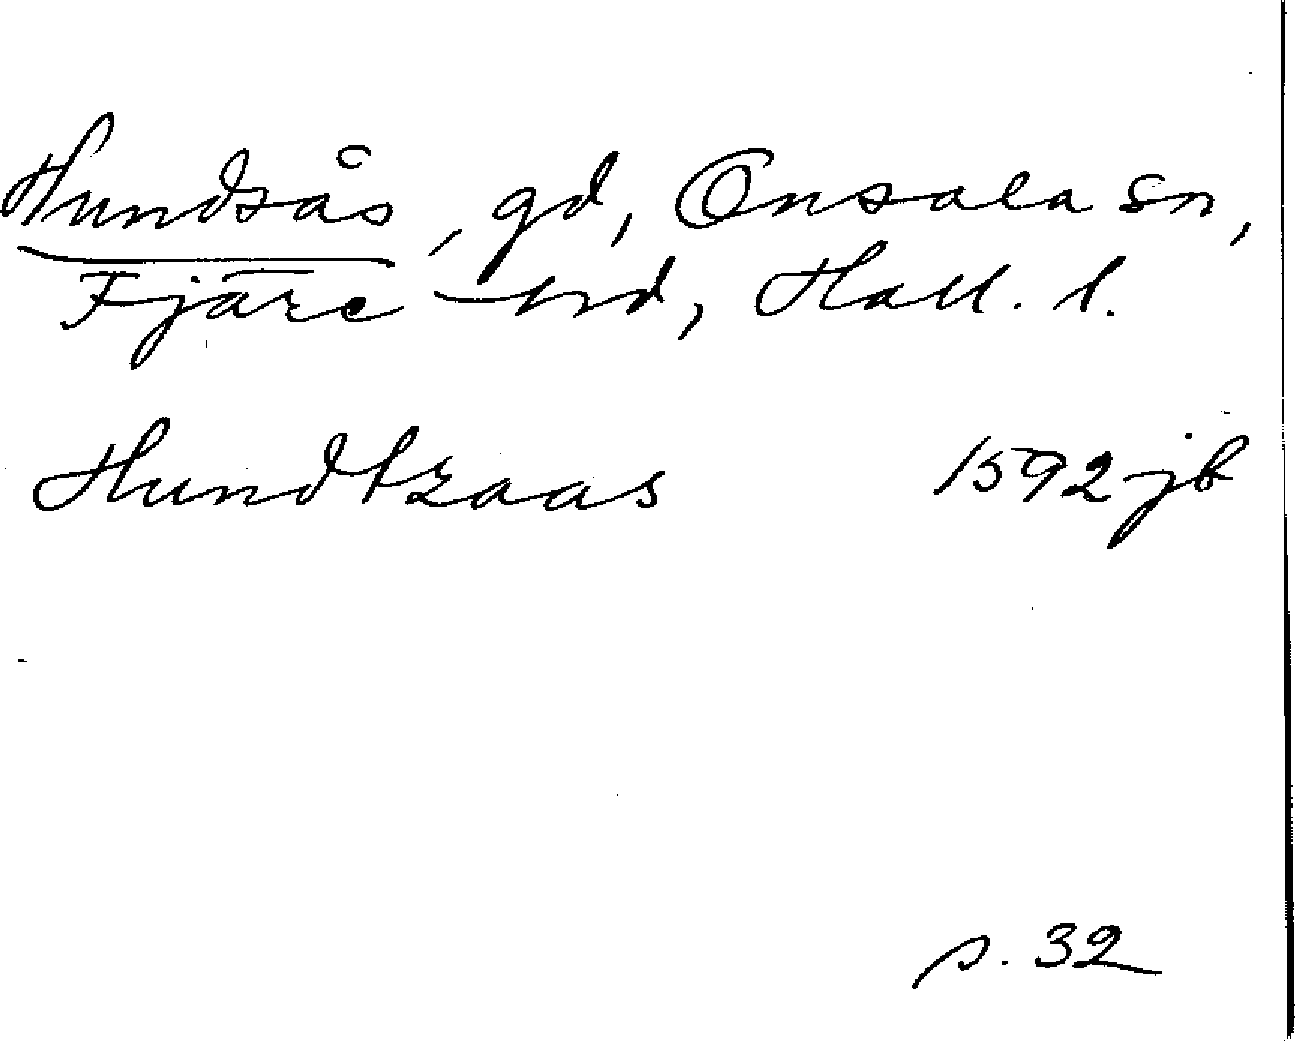 Hundsås, gd, Onsala sn,
Fjäre hd, Hall. l.
Hundtzaas 1592 jb
s. 32